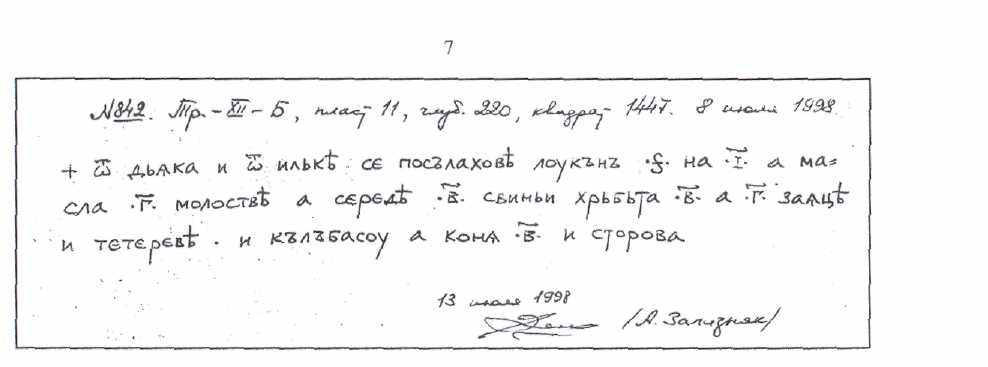 7
№842. Тр.-XII-Б, пласт 11, глуб. 220, квадрат 1447. 8 июля 1998
+ ѿ дьѧка и ѿ илькѣ се посълаховѣ лоукънъ ·ѕ҃· на ·І҃· а ма=
сла ·г҃· молоствѣ а середѣ ·в҃· свиньи хрьбьта ·в҃· а ·г҃· заѧцѣ
и тетеревѣ · и кълъбасоу а конѧ ·в҃· и сторова
13 июля 1998
/А. Зализняк/